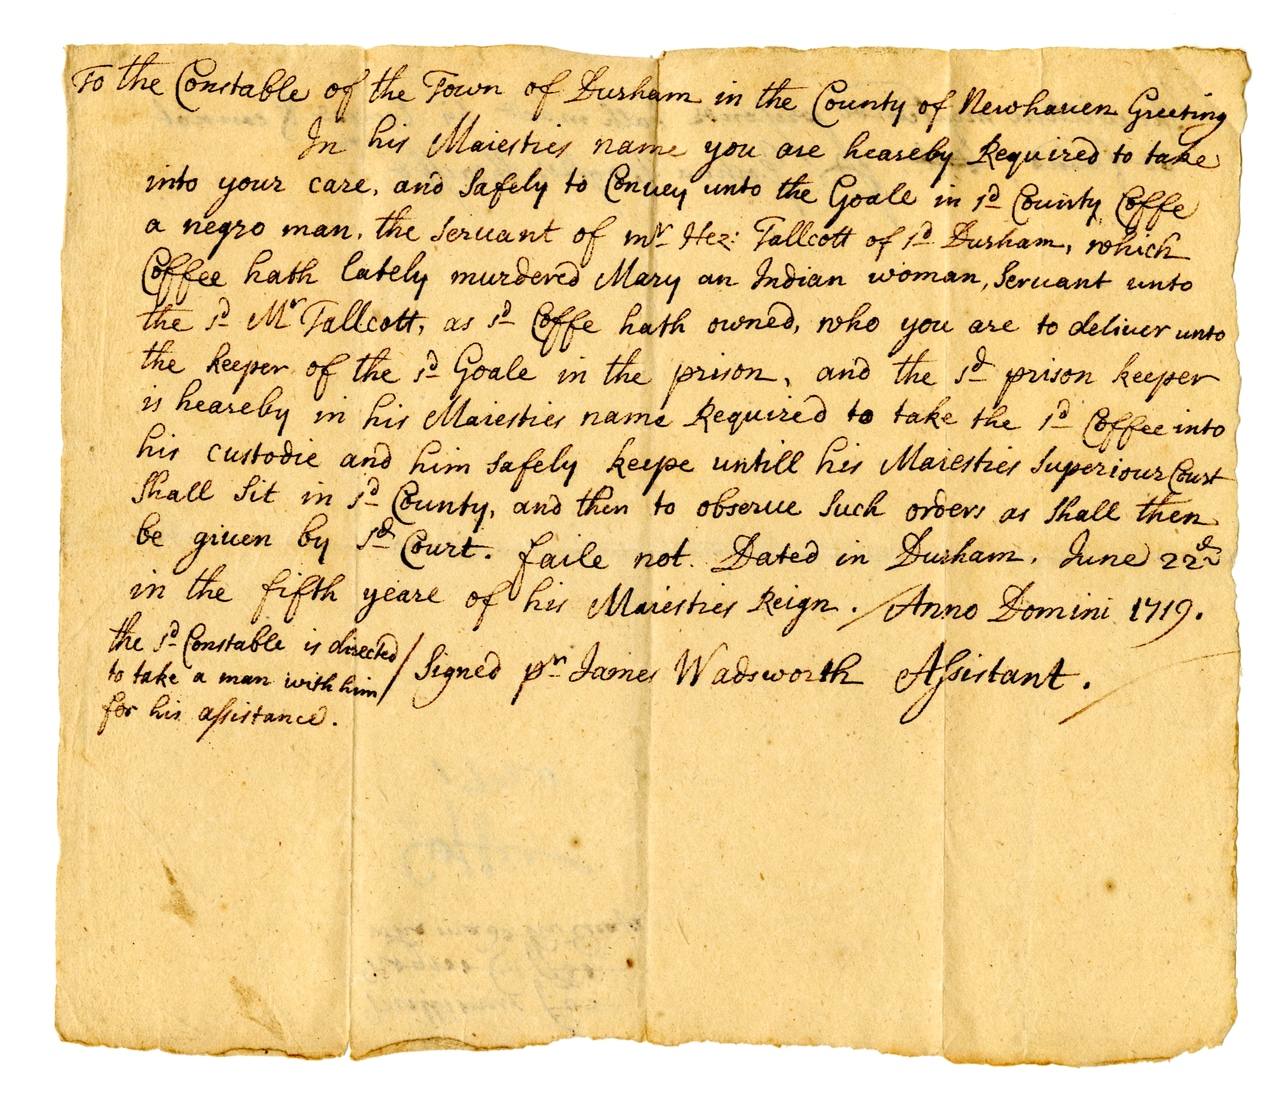 To the Constable of the Town of Durham in the County of Newhaven Greeting
In his Maiesties name you are heareby Required to take
into your care, and safely to Convey unto the Goale in sd County Coffe
a negro man, the servant of mr Hez: Tallcott of sd Durham, which
Coffee hath lately murdered Mary an Indian woman, servant unto
the sd Mr Tallcott, as sd Coffe hath owned, who you are to deliver unto
the keeper of the sd Goale in the prison, and the sd prison keeper
is heareby in his Maiesties name Required to take the sd Coffee into
his custodie and him safely keepe untill his Maiesties superiour Court
shall sit in sd County, and then to observe such orders as shall then
be given by sd Court. faile not. Dated in Durham, June 22d
in the fifth yeare of his Maiesties Reign. / Anno Domini 1719.
the sd Constable is directed
to take a man with him
for his assistance.
/ Signed pr James Wadsworth Assistant.